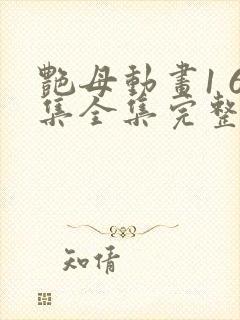 艷母動畫1 6
集全集完整
知情